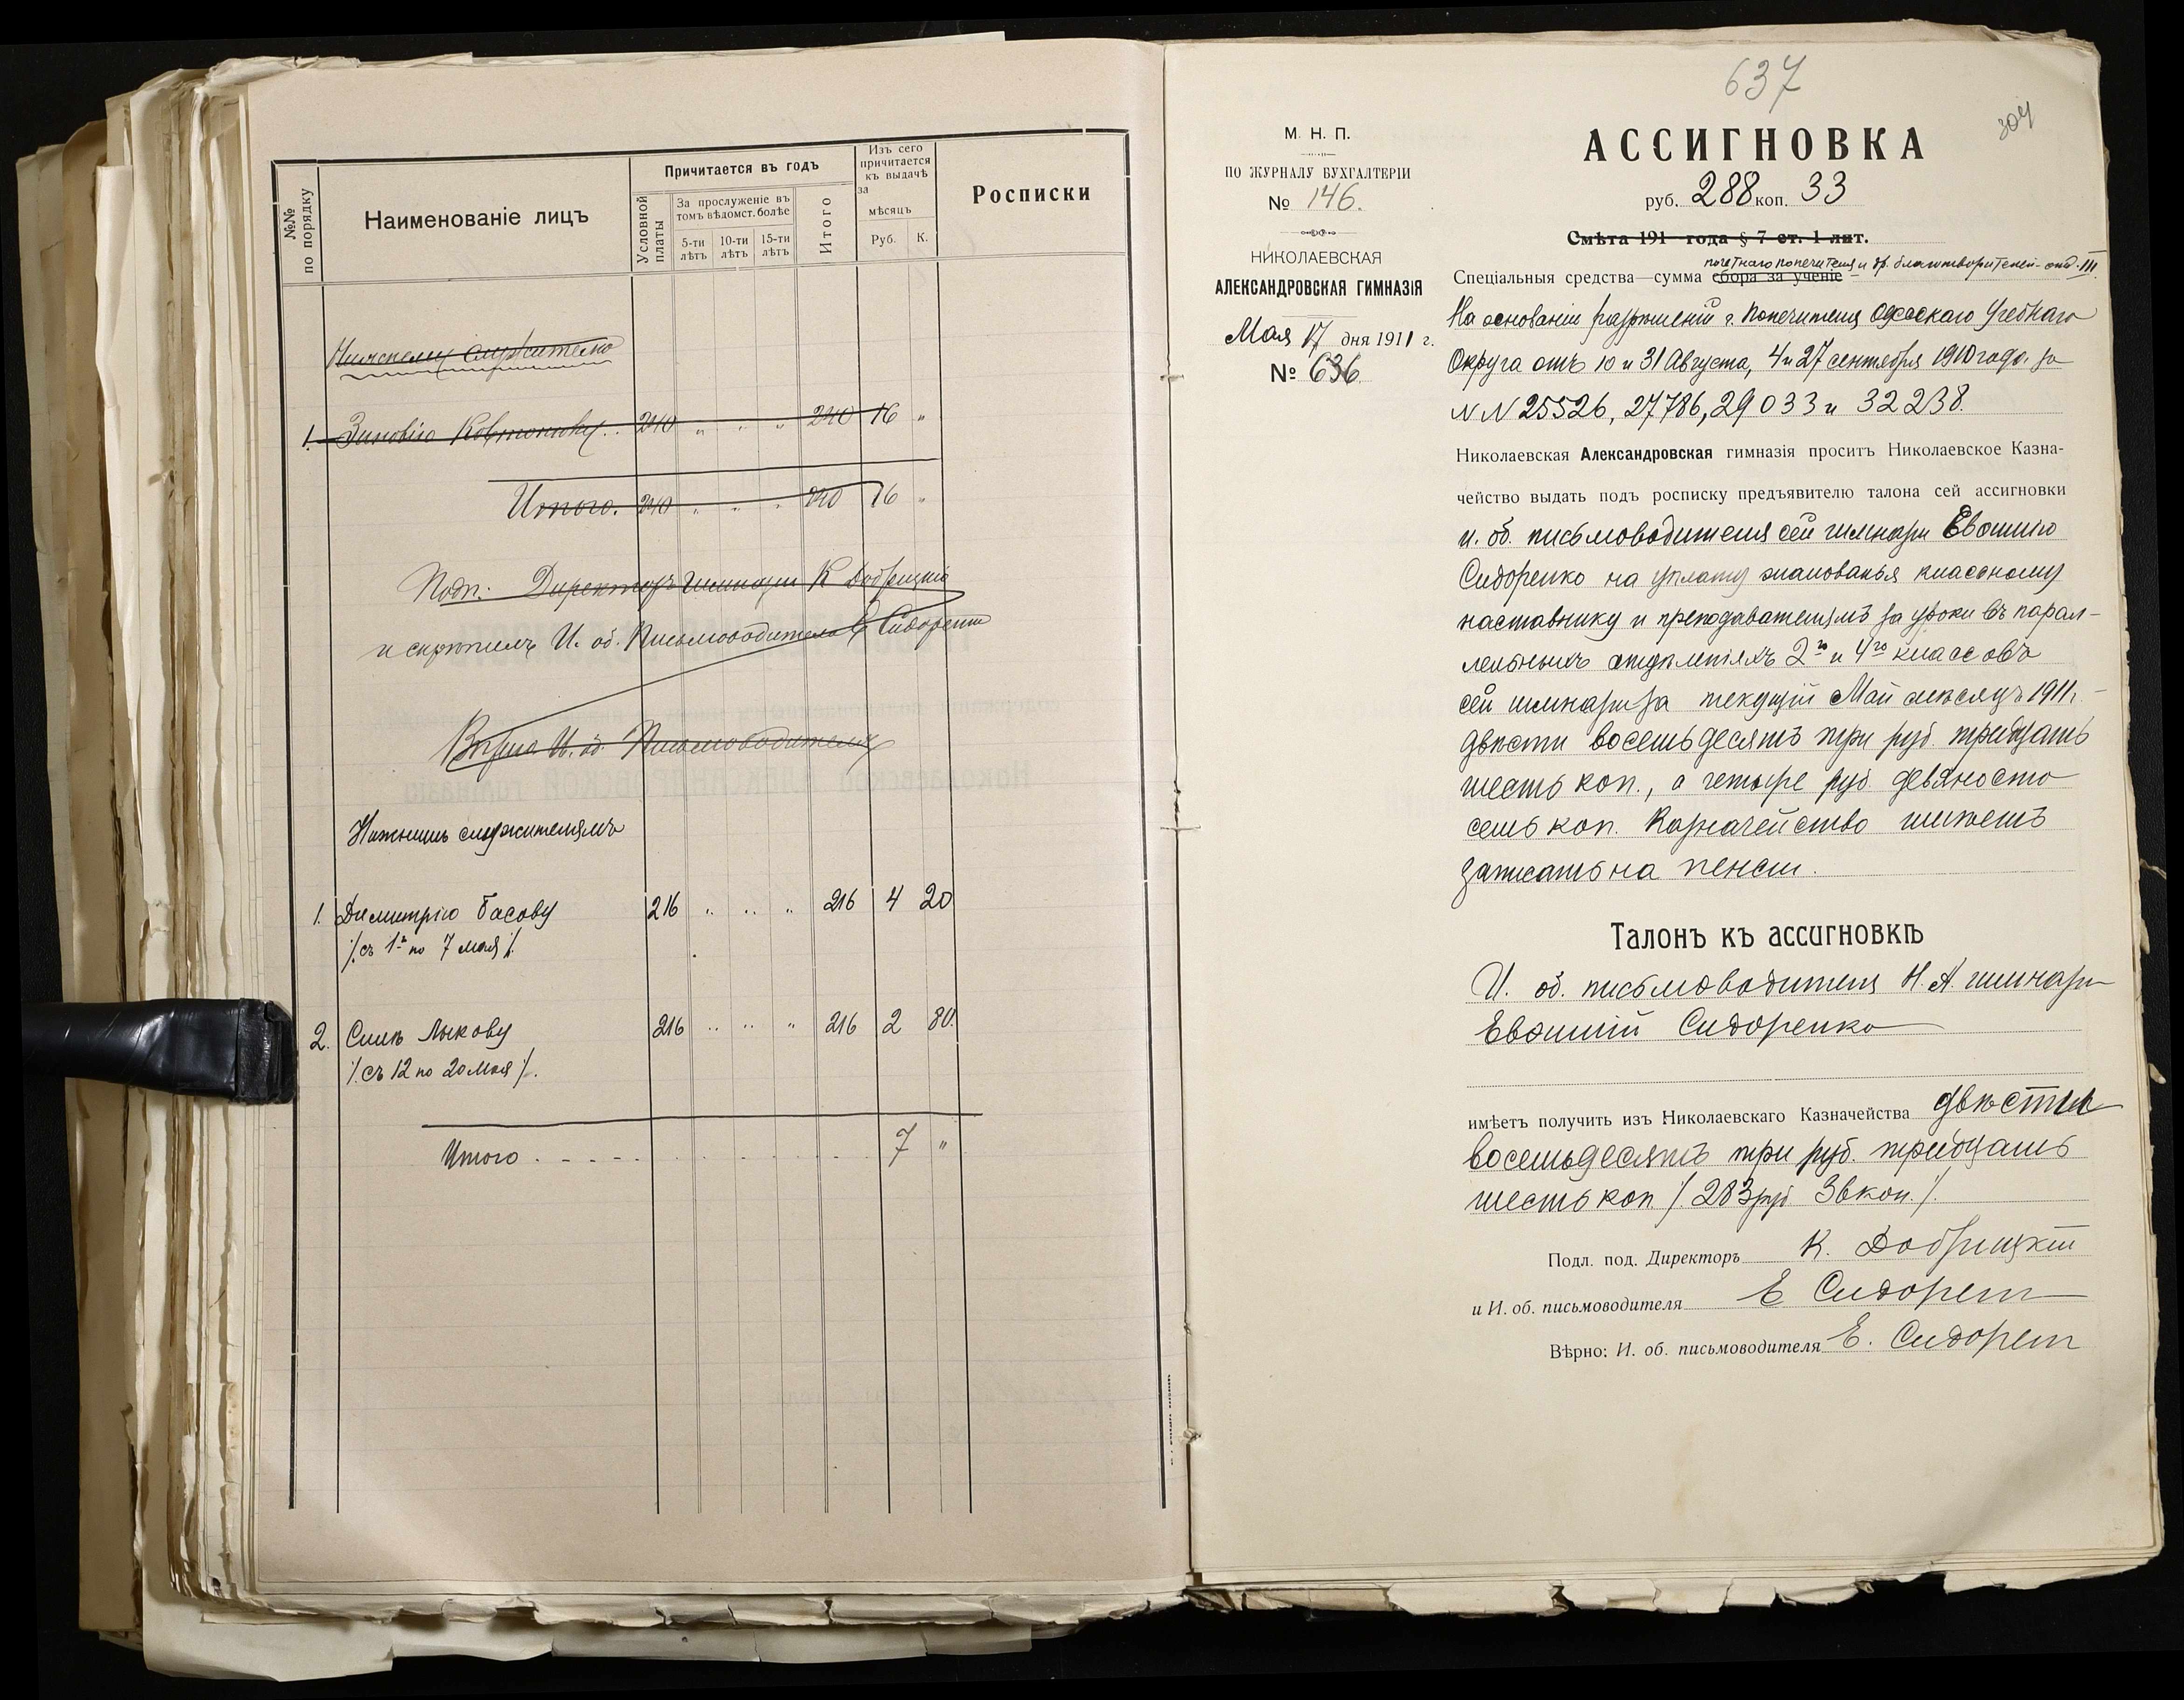 №№ по порядку
Наименованіе лицъ
Причитается въ годъ
Условной платы
За прослуженіе въ томъ вѣдомст. болѣе
5-ти лѣтъ
10-ти лѣтъ
15-ти лѣтъ
Итого
Изъ сего причитается къ выдачѣ за
мѣсяцъ
Руб. К.
Росписки
Нижнему служителю
1. Зиновію Ковтонюку.. 240 „ „ „ 240 16 „
Итого. 240 „ „ „ 240 16 „
Подп: Директоръ гимназіи К Добрицкій
и скрѣпилъ И. об. Письмоводителя Е Сидоренко
Вѣрно И. об. Письмоводителя
Нижнимъ служителямъ
1. Димитрію Басову 216 „ „ „ 216 4 20
/. съ 1го по 7 мая /.
2. Силѣ Лыкову 216 „ „ „ 216 2 80.
/. съ 12 по 20 мая /.
Итого . - - - - 7 „
637
304
М. Н. П.
ПО ЖУРНАЛУ БУХГАЛТЕРІИ
№ 146.
НИКОЛАЕВСКАЯ
АЛЕКСАНДРОВСКАЯ ГИМНАЗІЯ
Мая 17 дня 1911 г.
№ 636
АССИГНОВКА
руб. 288 коп. 33
Смѣта 191 года § 7 ст. 1 лит.
почетнаго попечителя и др. благотворителей - отд. III
Спеціальныя средства—сумма сбора за ученіе
На основаніи разрѣшеній г. Попечителя Одесскаго Учебнаго
Округа отъ 10 и 31 Августа, 4 и 27 сентября 1910 года за
NN 25526, 27786, 29033 и 32238.
Николаевская Александровская гимназія проситъ Николаевское Казна-
чейство выдать подъ росписку предъявителю талона сей ассигновки
и. об. письмоводителя сей гимназіи Евѳимію
Сидоренко на уплату жалованья классному
наставнику и преподавателямъ за уроки въ парал-
лельныхъ отдѣленіяхъ 2го и 4го классовъ
сей гимназіи за текущій Май мѣсяцъ 1911 г. -
двѣсти восемьдесятъ три руб. тридцать
шесть коп., а четыре руб. девяносто
семь коп. Казначейство имѣетъ
записать на пенсіи.
Талонъ къ ассигновкѣ
И. об. письмоводителя Н. А. гимназіи
Евѳимій Сидоренко
имѣетъ получить изъ Николаевскаго Казначейства двѣсти
восемьдесятъ три руб. тридцать
шесть коп. /. 283 руб 36 коп. /.
Подл. под. Директоръ К. Добрицкій
и И. об. письмоводителя Е Сидорен
Вѣрно: И. об. письмоводителя Е. Сидорен